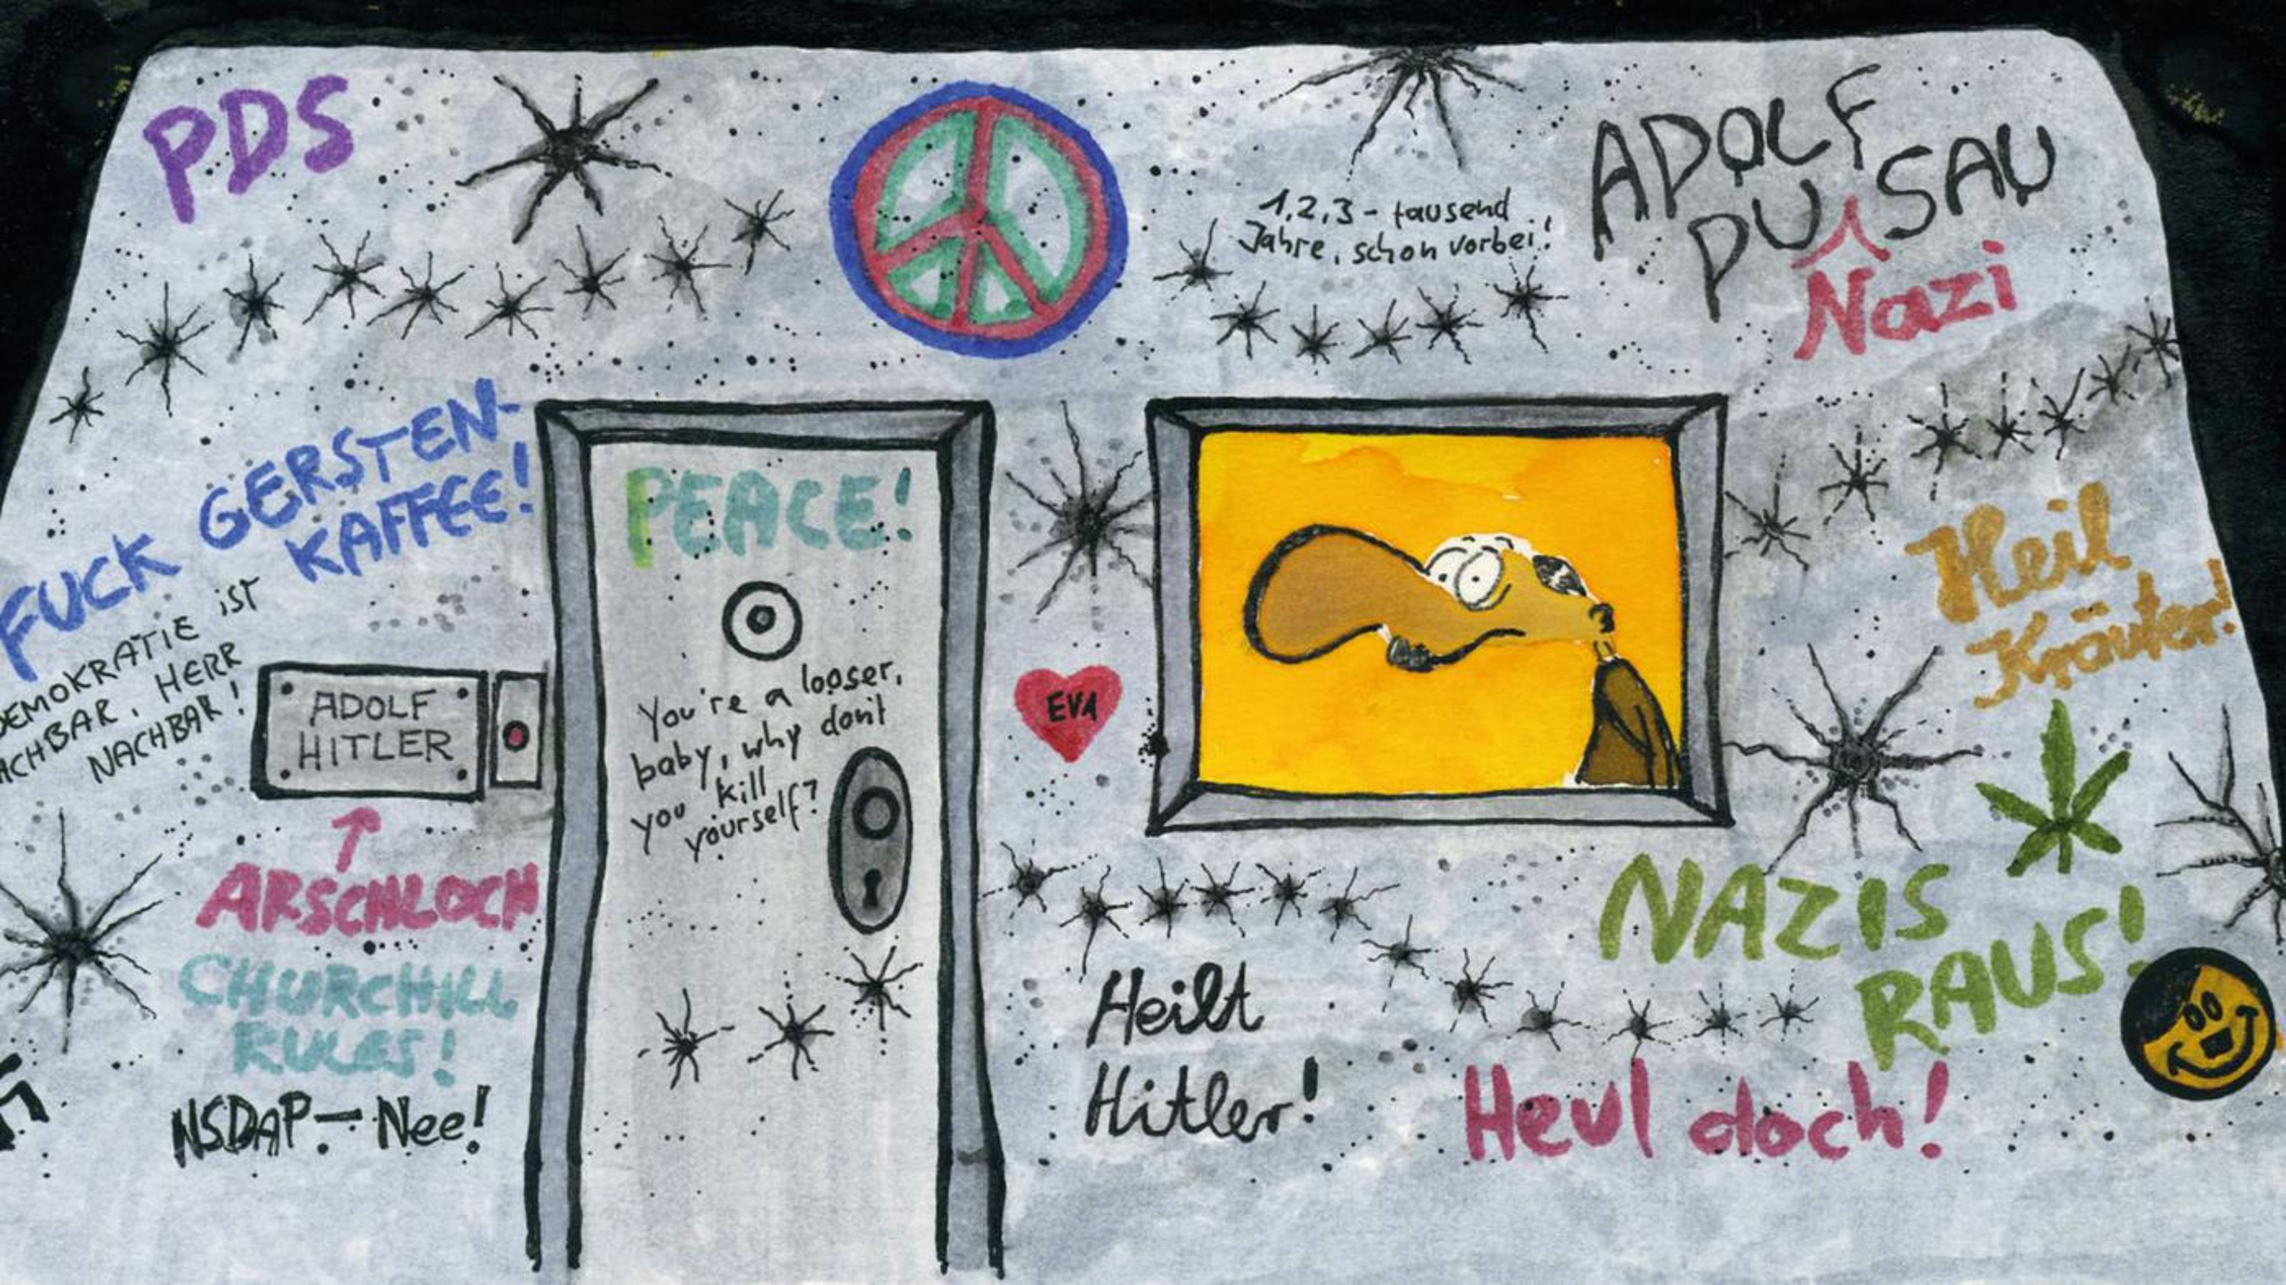 PDS
1, 2, 3 - tausend
Jahre, schon vorbei!
ADOLF
DU SAU
Nazi
FUCK GERSTEN-
KAFFEE!
DEMOKRATIE iST
MACHBAR, HERR
NACHBAR!
ADOLF
HITLER
ARSCHLOCH
CHURCHILL
RULES!
NSDAP - Nee!
PEACE!
You're a looser,
baby, why don't
you kill
yourself?
EVA
Heil
Kräuter!
NAZIS
RAUS!
Heilt
Hitler!
Heul doch!